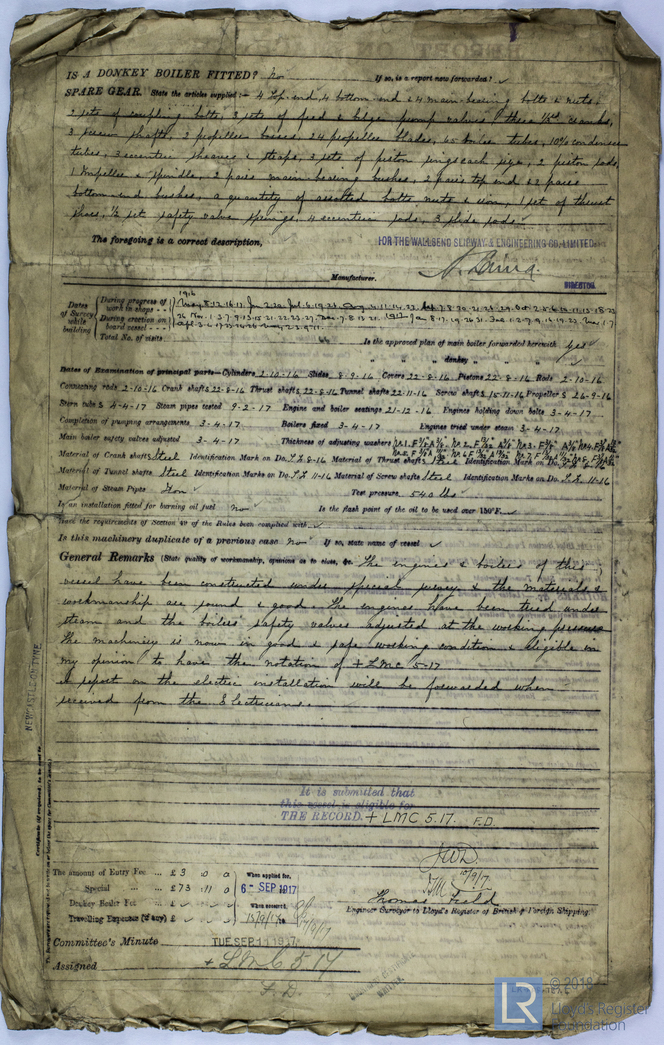 IS A DONKEY BOILER FITTED? no If so, is a report now forwarded? ✓
SPARE GEAR. State the articles supplied:— 4 top end, 4 bottom end & 4 main bearing bolts & nuts,
2 sets of coupling bolts, 3 sets of feed & bilge pump valves, three 1/3rd cranks,
3 screw shafts, 2 propeller bosses 24 propeller blades, 65 boiler tubes, 10% condenser
tubes, 3 eccentric sheaves & straps, 3 sets of piston rings each size, 2 piston rods,
1 impeller & spindle, 2 pairs main bearing bushes, 2 pairs top end & 2 pairs
bottom end bushes, a quantity of assorted bolts, nuts & iron, 1 set of thrust
shoes, ½ set safety valve springs, 4 eccentric rods, 3 slide rods ✓
The foregoing is a correct description,
FOR THE WALLSEND SLIPWAY & ENGINEERING CO. LIMITED.
DIRECTOR
Manufacturer.
Dates of Survey while building
During progress of work in shops - -
1916
During erection on board vessel - - -
1917
Total No. of visits 64
Is the approved plan of main boiler forwarded herewith Yes ✓
" " " donkey " " " ✓
Dates of Examination of principal parts—Cylinders 2-10-16 Slides 8-9-16 Covers 22-8-16 Pistons 22-8-16 Rods 2-10-16
Connecting rods 2-10-16 Crank shafts 22-8-16 Thrust shafts 22-8-16 Tunnel shafts 22-11-16 Screw shafts 15-11-16 Propellers 26-9-16
Stern tubes 4-4-17 Steam pipes tested 9-2-17 Engine and boiler seatings 21-12-16 Engines holding down bolts 3-4-17
Completion of pumping arrangements 3-4-17 Boilers fixed 3-4-17 Engines tried under steam 3-4-17
Main boiler safety valves adjusted 3-4-17 Thickness of adjusting washers
Material of Crank shafts Steel Identification Mark on Do. 8-16 Material of Thrust shafts Steel Identification Mark on Do.
Material of Tunnel shafts Steel Identification Marks on Do. 11-16 Material of Screw shafts Steel Identification Marks on Do. 11-16
Material of Steam Pipes Iron ✓ Test pressure 540 lbs ✓
Is an installation fitted for burning oil fuel no ✓ Is the flash point of the oil to be used over 150°F. ✓
Have the requirements of Section 49 of the Rules been complied with ✓
Is this machinery duplicate of a previous case no ✓ If so, state name of vessel ✓
General Remarks (State quality of workmanship, opinions as to class, &c. The engines & boilers of this
vessel have been constructed under special survey & the materials &
workmanship are sound & good. The engines have been tried under
steam and the boilers' safety valves adjusted at the working pressure
The machinery is now in good & safe working condition & eligible in
my opinion to have the notation of + LMC 5-17
A report on the electric installation will be forwarded when
received from the Electricians.
NEWCASTLE-ON-TYNE
It is submitted that
this vessel is eligible for
THE RECORD. + LMC 5.17. F.D.
The amount of Entry Fee ... £ 3 0 0 When applied for,
Special ... £ 73 11 0 6 - SEP 1917
Donkey Boiler Fee ... £ When received,
Travelling Expenses (if any) £ 15/9/17
Thomas Field
Engineer Surveyor to Lloyd's Register of British & Foreign Shipping.
Committee's Minute TUE. SEP. 11 1917
Assigned + LMC 5.17
F.D.
LR
© 2018
Lloyd's Register
Foundation